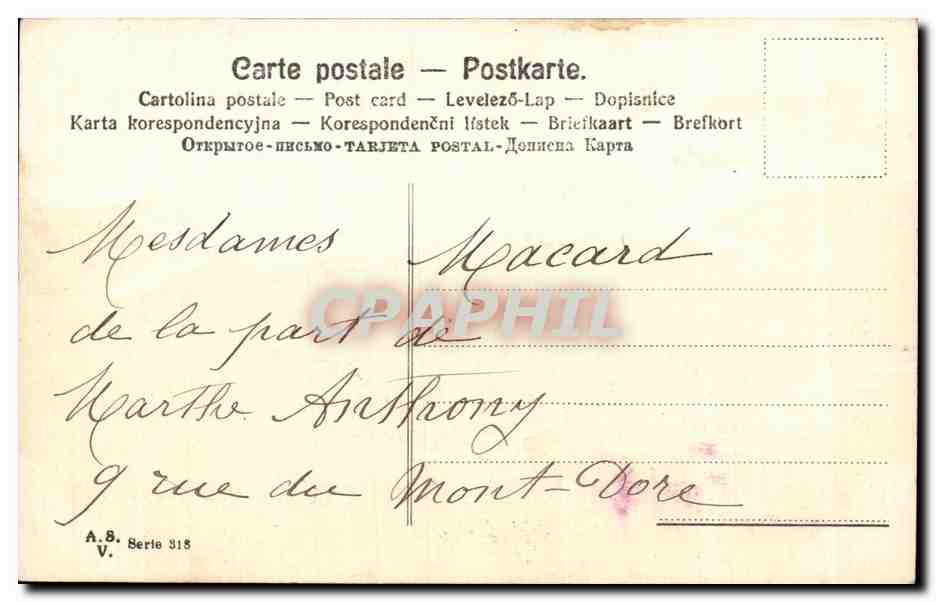 Carte postale — Postkarte.
Cartolina postale — Post card — Levelező-Lap — Dopisnice
Karta korespondencyjna — Korespondenční lístek — Briefkaart — Brefkort
Открытое-письмо-TARJETA POSTAL-Дописна Карта
Mesdames Macard
CPAPHIL
de la part de
Marthe Anthony
9 rue du Mont-Dore
A.S.
V. Serie 318